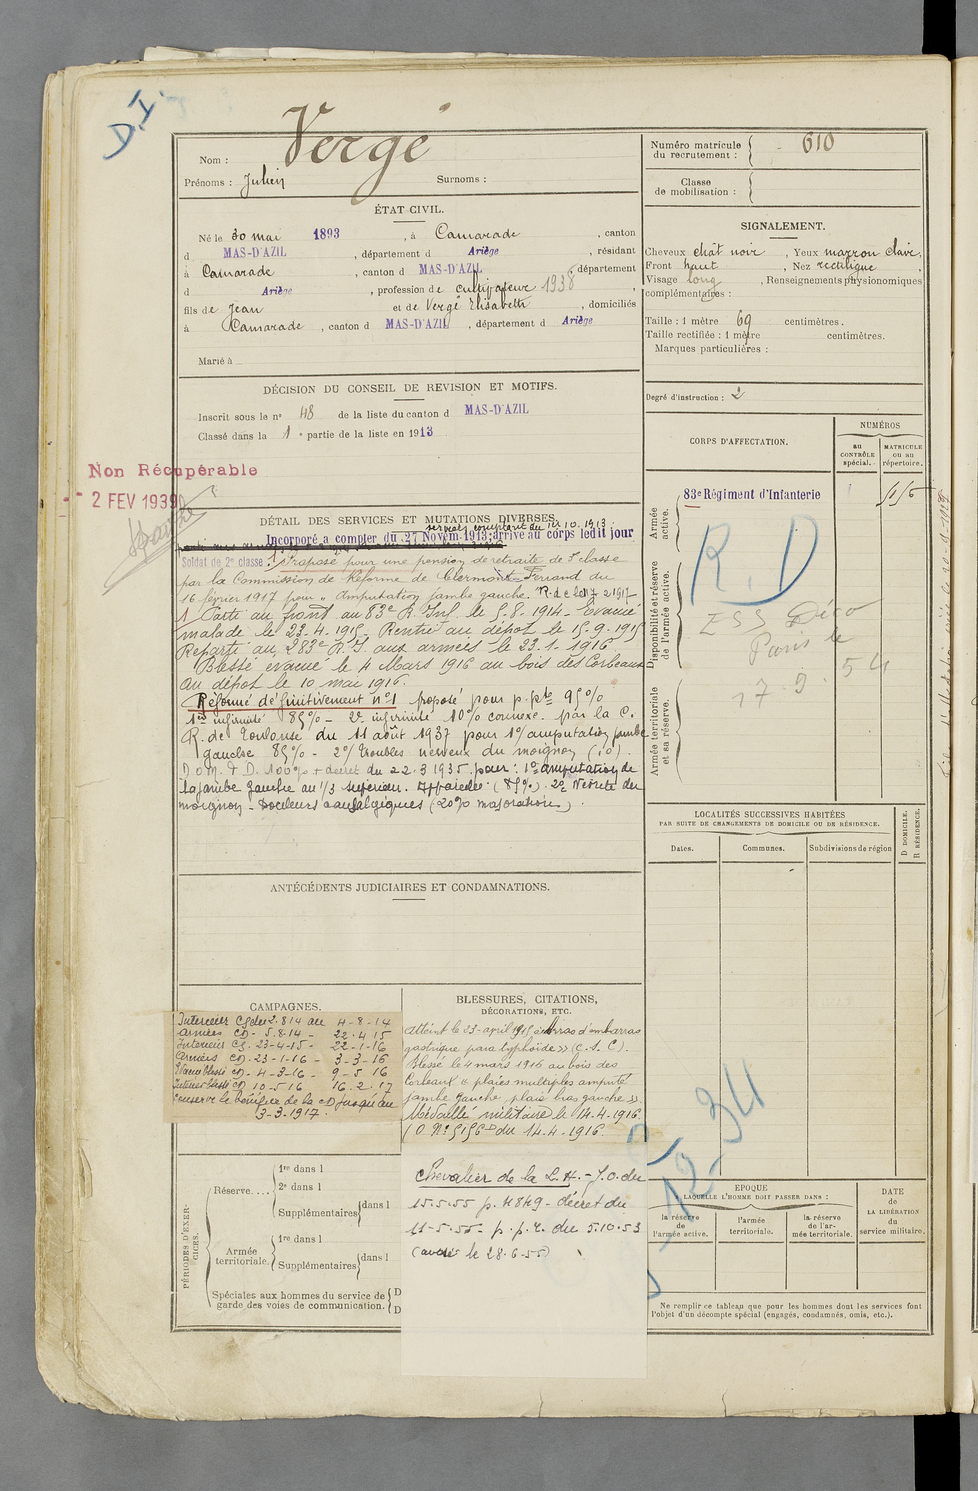 D.I.
Nom : Vergé
Prénoms : Julien Surnoms :
ÉTAT CIVIL.
Né le 30 mai 1893, à Camarade, canton
d MAS-D'AZIL, département d Ariège, résidant
à Camarade, canton d MAS-D'AZIL, département
d Ariège, profession de cultivateur 1938,
fils de Jean et de Vergé Elisabeth, domiciliés
à Camarade, canton d MAS-D'AZIL, département d Ariège
Marié à
DÉCISION DU CONSEIL DE REVISION ET MOTIFS.
Inscrit sous le n° 48 de la liste du canton d MAS-D'AZIL
Classé dans la 1e partie de la liste en 1913
Non Récupérable
2 FEV 1939
DÉTAIL DES SERVICES ET MUTATIONS DIVERSES.
services comptant du 1er 10.1913
Incorporé a compter du 27 Novem. 1913; arrivé au corps ledit jour
Soldat de 2e classe. Proposé pour une pension de retraite de 5e classe
par la Commission de Réforme de Clermont-Ferrand du
16 février 1917 pour " Amputation jambe gauche.
1 Parti au front au 83e R. Inf. le 5-8-1914 - Evacué
malade le 23.4.1915 - Rentré au dépôt le 15.9.1915
Reparti au 283e R.I. aux armées le 23.1.1916
Blessé évacué le 4 Mars 1916 au bois des Corbeaux
au dépôt le 10 mai 1916.
Réformé définitivement n°1 proposé pour p.pte 95%
1re infirmité 85% - 2e infirmité 10% connexe. par la C.
R. de Toulouse du 11 août 1937 pour 1°/ amputation jambe
gauche 85% - 2°/ troubles nerveux du moignon (10).
100% + décret du 22.3.1935 pour : 1° amputation de
la jambe gauche au 1/3 supérieur. Appareillé (85%). 2° Névrite du
moignon - Douleurs causalgiques (20% majoration).
ANTÉCÉDENTS JUDICIAIRES ET CONDAMNATIONS.
CAMPAGNES.
Intérieur CS du 2.8.14 au 4-8-14
Armées CD - 5-8-14 - 22.4.15
Intérieur CS. 23-4-15 - 22-1-16
Armées CD. 23-1-16 - 3-3-16
Evacué blessé CD - 4-3-16 - 9-5-16
Intérieur blessé CD 10-5-16 16.2.17
Conserve le bénéfice de la CD jusqu'au
3-3-1917.
BLESSURES, CITATIONS,
DÉCORATIONS, ETC.
Atteint le 23 avril 1915 à Arras d'embarras
gastrique para typhoïde » (C.S.C).
Blessé le 4 mars 1916 au bois des
Corbeaux « plaies multiples amputé
jambe gauche, plaie bras gauche ».
Médaillé militaire le 14.4.1916.
(O. N° 5156 D du 14.4.1916.
Chevalier de la L.H. - J.O. du
15.5.55 p. 4849 - décret du
11-5-55 - p.p.r. du 5.10.53
le 28.6.55)
PÉRIODES D'EXERCICES.
Réserve....
1re dans l
2e dans l
Supplémentaires dans l
Armée
territoriale.
1re dans l
Supplémentaires dans l
Spéciales aux hommes du service de
garde des voies de communication.
D
D
Numéro matricule
du recrutement : 610
Classe
de mobilisation :
SIGNALEMENT.
Cheveux chât noir, Yeux marron clair,
Front haut, Nez rectiligne,
Visage long, Renseignements physionomiques
complémentaires :
Taille : 1 mètre 69 centimètres.
Taille rectifiée : 1 mètre centimètres.
Marques particulières :
Degré d'instruction : 2
CORPS D'AFFECTATION.
NUMÉROS
au
CONTRÔLE
spécial.
MATRICULE
ou au
répertoire.
Armée
active.
83e Régiment d'Infanterie
R.D
Disponibilité et réserve
de l'armée active.
Paris le
17.9.54
Armée territoriale
et sa réserve.
LOCALITÉS SUCCESSIVES HABITÉES
PAR SUITE DE CHANGEMENTS DE DOMICILE OU DE RÉSIDENCE.
Dates. Communes. Subdivisions de région
D DOMICILE.
R RÉSIDENCE.
12-34
EPOQUE
A LAQUELLE L'HOMME DOIT PASSER DANS :
la réserve
de
l'armée active.
l'armée
territoriale.
la réserve
de l'ar-
mée territoriale.
DATE
de
LA LIBÉRATION
du
service militaire.
Ne remplir ce tableau que pour les hommes dont les services font
l'objet d'un décompte spécial (engagés, condamnés, omis, etc.).